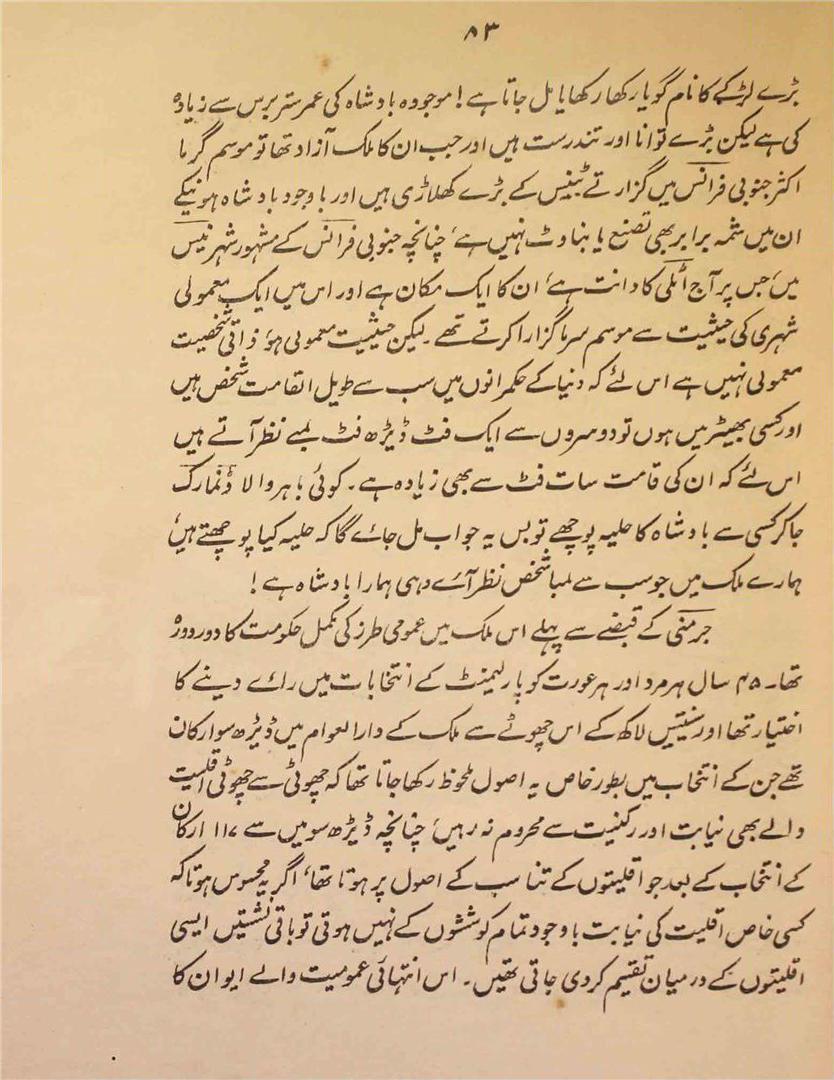 ۸۳
بڑے لڑکے کا نام گویا رکھا رکھایا مل جاتا ہے! موجودہ بادشاہ کی عمر ستر برس سے زیادہ
کی ہے لیکن بڑے توانا اور تندرست ہیں اور جب ان کا ملک آزاد تھا تو موسم گرما
اکثر جنوبی فرانس میں گزارتے ٹینس کے بڑے کھلاڑی ہیں اور باوجود بادشاہ ہونیکے
ان میں شمہ برابر بھی تصنع یا بناوٹ نہیں ہے، چنانچہ جنوبی فرانس کے مشہور شہر نیس
میں، جس پر آج اٹلی کا دانت ہے، ان کا ایک مکان ہے اور اس میں ایک معمولی
شہری کی حیثیت سے موسم سرما گزارا کرتے تھے۔ لیکن حیثیت معمولی ہو، ذاتی شخصیت
معمولی نہیں ہے اس لئے کہ دنیا کے حکمرانوں میں سب سے طویل القامت شخص ہیں
اور کسی بھیڑ میں ہوں تو دوسروں سے ایک فٹ ڈیڑھ فٹ لمبے نظر آتے ہیں
اس لئے کہ ان کی قامت سات فٹ سے بھی زیادہ ہے۔ کوئی باہر والا ڈنمارک
جا کر کسی سے بادشاہ کا حلیہ پوچھے تو بس یہ جواب مل جائے گا کہ حلیہ کیا پوچھتے ہیں،
ہمارے ملک میں جو سب سے لمبا شخص نظر آئے وہی ہمارا بادشاہ ہے!
جرمنی کے قبضے سے پہلے اس ملک میں عمومی طرز کی مکمل حکومت کا دور دورہ
تھا۔ ۴۵ سال ہر مرد اور ہر عورت کو پارلیمنٹ کے انتخابات میں رائے دینے کا
اختیار تھا اور سنتیس لاکھ کے اس چھوٹے سے ملک کے دارالعوام میں ڈیڑھ سو ارکان
تھے جن کے انتخاب میں بطور خاص یہ اصول ملحوظ رکھا جاتا تھا کہ چھوٹی سے چھوٹی اقلیت
والے بھی نیابت اور رکنیت سے محروم نہ رہیں، چنانچہ ڈیڑھ سو میں سے ۱۱۷ ارکان
کے انتخاب کے بعد جو اقلیتوں کے تناسب کے اصول پر ہوتا تھا، اگر یہ محسوس ہوتا کہ
کسی خاص اقلیت کی نیابت باوجود تمام کوششوں کے نہیں ہوتی تو باقی نشستیں ایسی
اقلیتوں کے درمیان تقسیم کر دی جاتی تھیں۔ اس انتہائی عمومیت والے ایوان کا